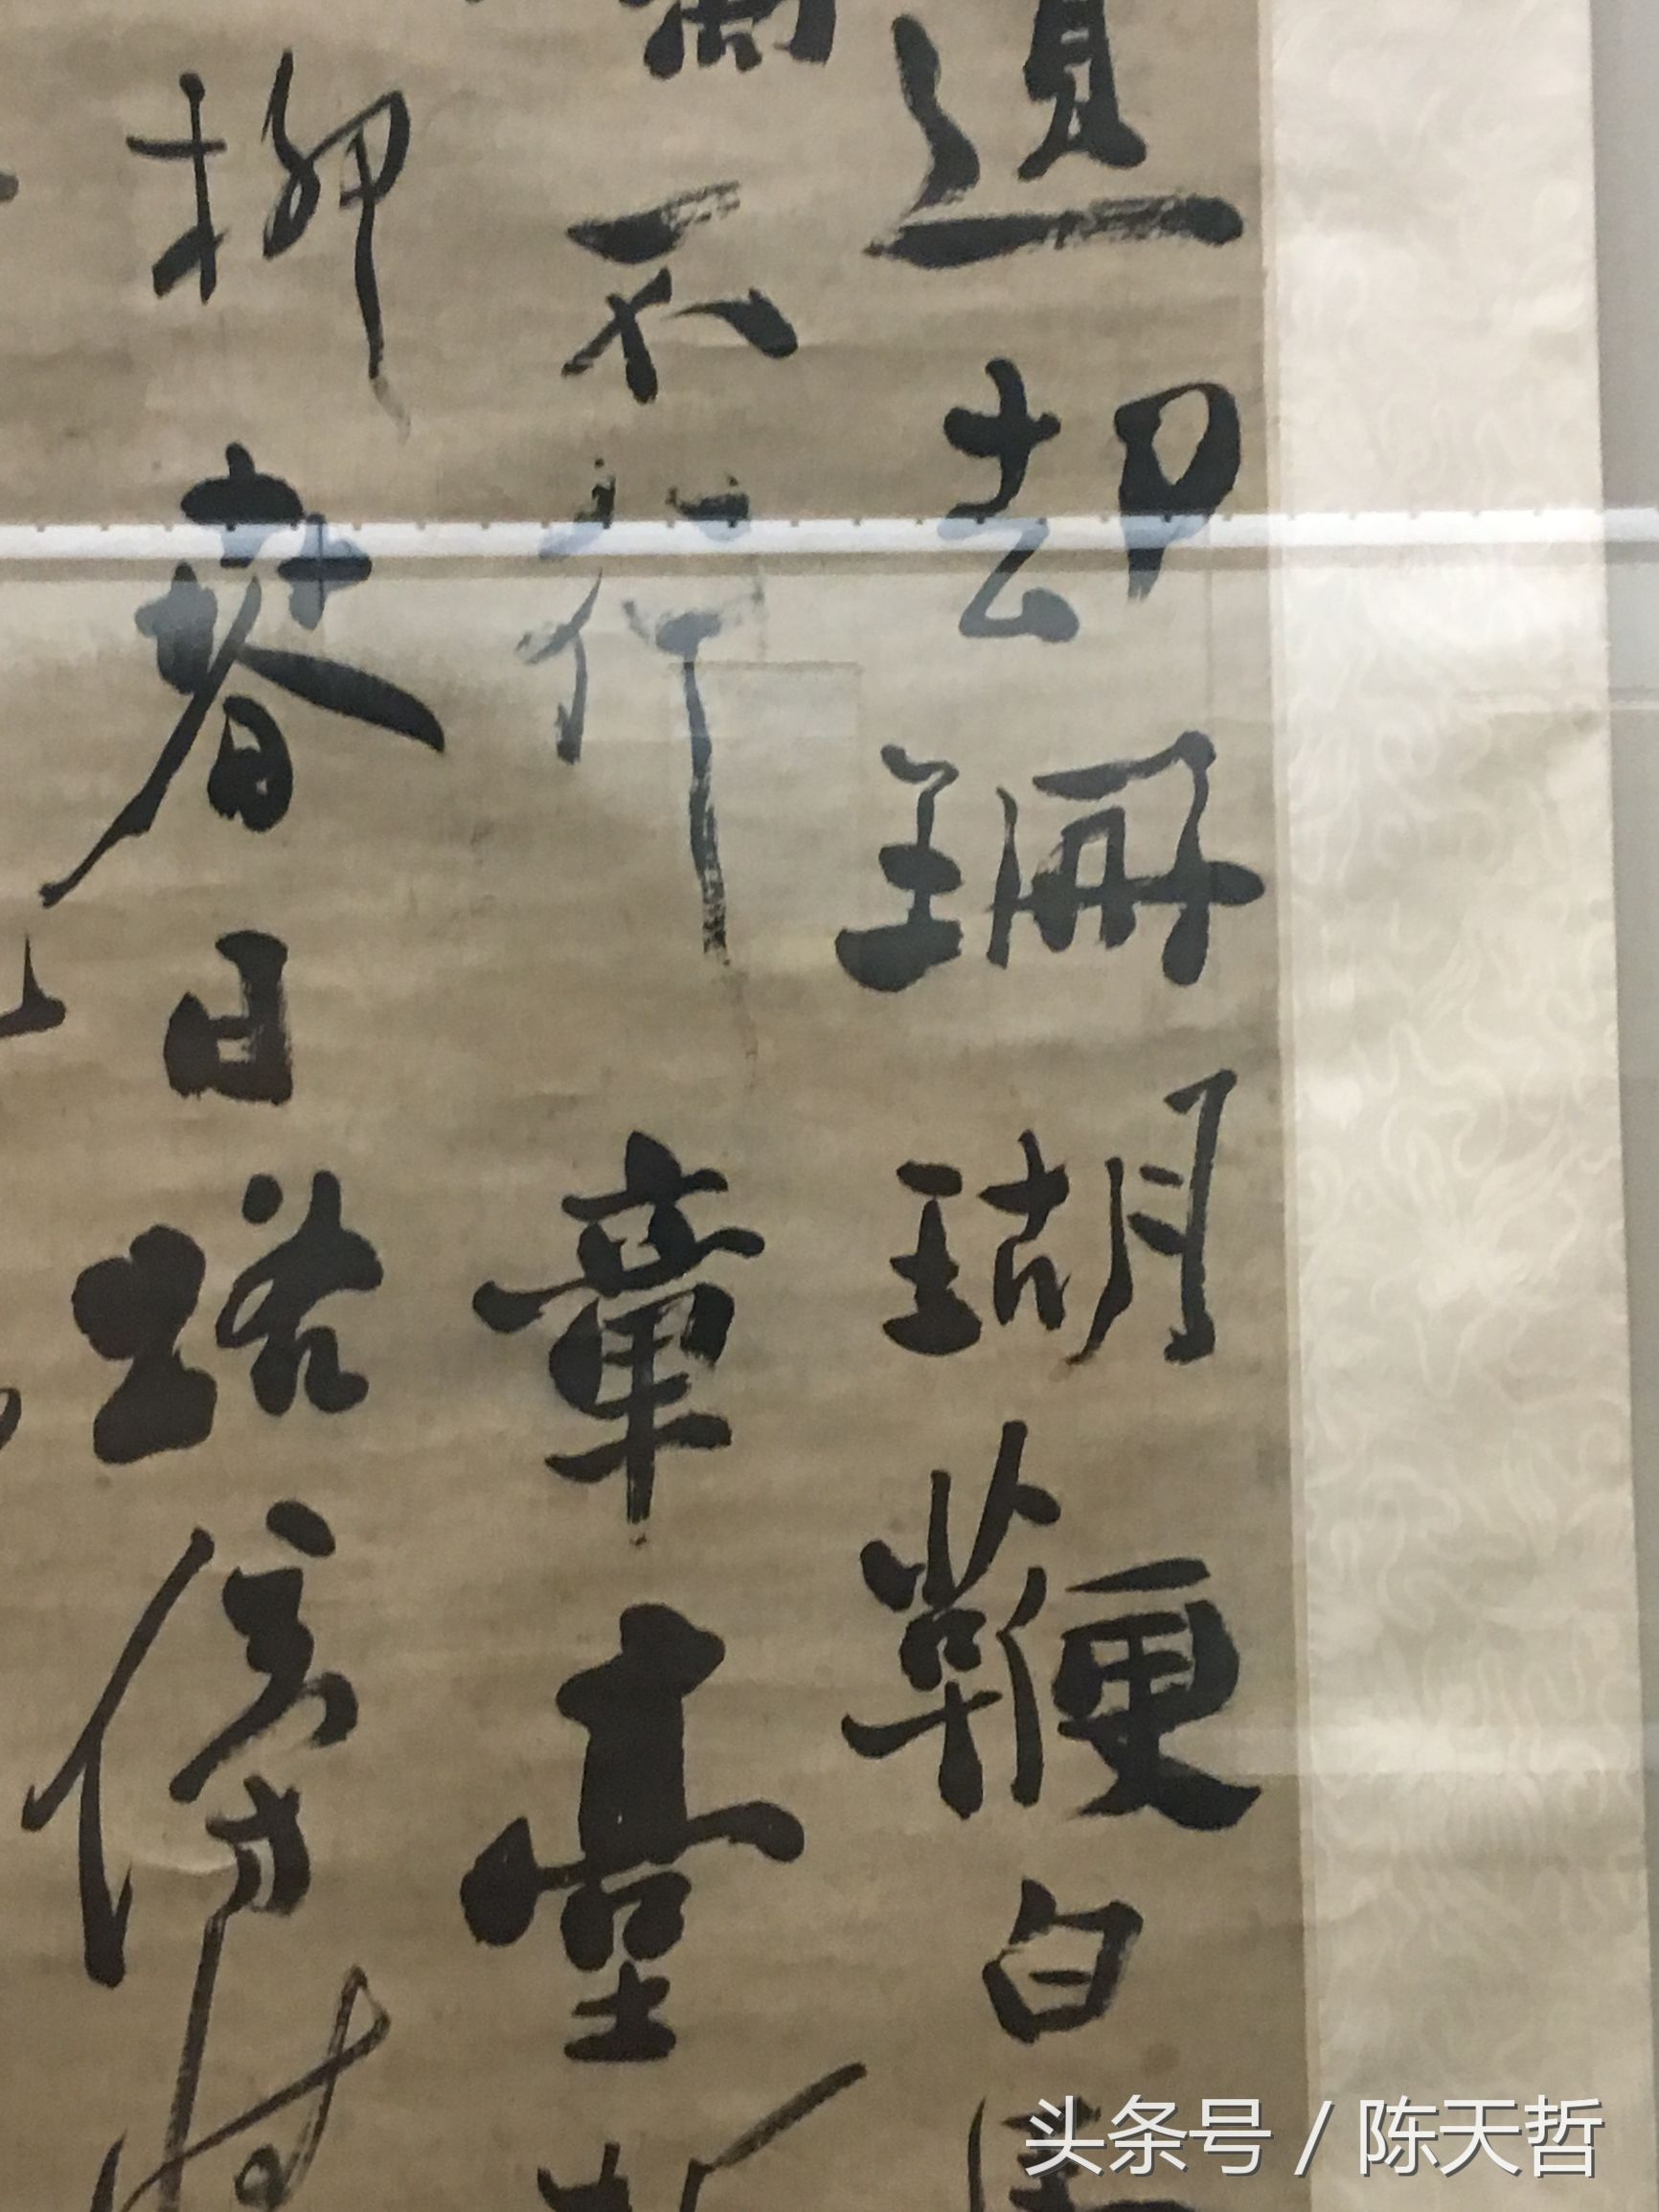 遺却珊瑚鞭白
不行章臺
柳春日路傍
头条号 / 陈天哲